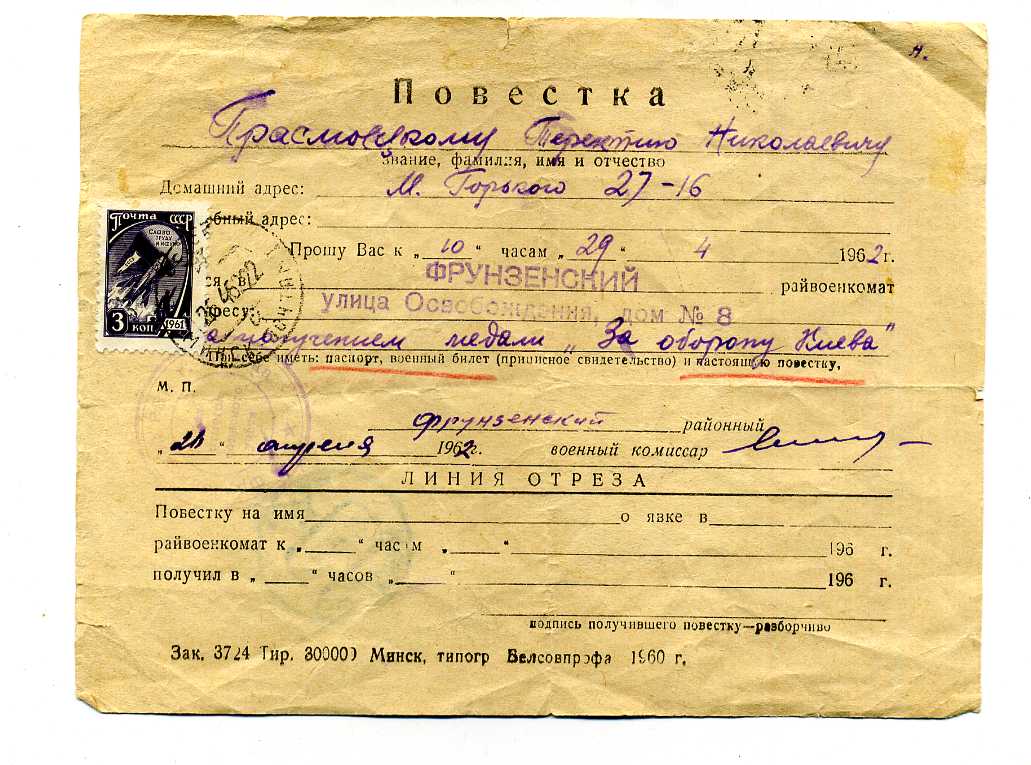 Повестка
Прасмовцкому Терентию Николаевичу
Звание, фамилия, имя и отчество
Домашний адрес: М. Горького 27-16
бный адрес:
Прошу Вас к „10“ часам „29“ 4 1962г.
ся в ФРУНЗЕНСКИЙ райвоенкомат
ресу: улица Освобождения, дом № 8
за получением медали „За оборону Киева“
При себе иметь: паспорт, военный билет (приписное свидетельство) и настоящую повестку.
М. П.
Фрунзенский районный
„21“ апреля 1962г. военный комиссар
ЛИНИЯ ОТРЕЗА
Повестку на имя о явке в
райвоенкомат к „ “ часам „ “ 196 г.
получил в „ “ часов „ “ 196 г.
подпись получившего повестку—разборчиво
Зак. 3724 Тир. 300000 Минск, типогр Белсовпрофа 1960 г.
Почта СССР
СЛОВО
ТРУДУ
И НАУКЕ
3 КОП
1961
МИНСК
н.